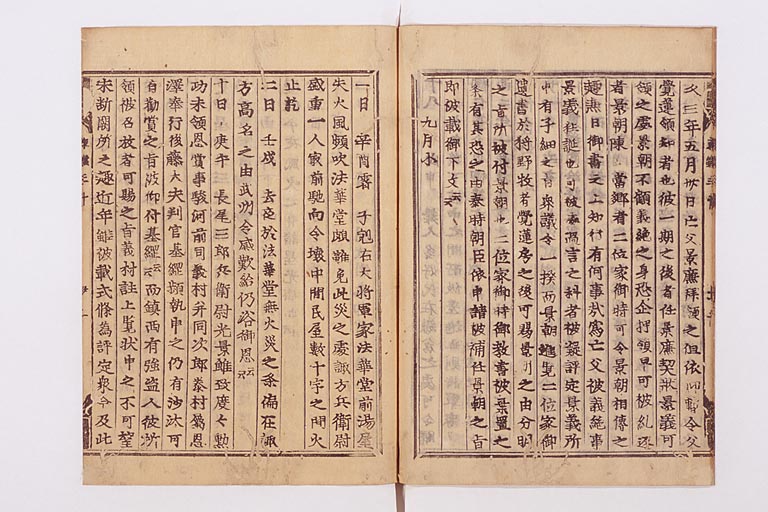 久三年五月卅日亡父景廉拜領之但依令父
覺蓮領知者也彼一期之後者任景廉契狀景義可
領之處景朝不顧義絶之身恐企押領早可被糺返
者景朝陳當鄕者二位家御時可令景朝相傳之
趣無日御書之上知行有何事哉爲亡父被義絶事
景義狂誕也可被處罵言之科者被凝評定景義所
申有子細之由衆議令一揆而景朝進覽二位家御
遺書於狩野牧者覺蓮房之後可賜之由分明
之旨所被付景朝也二位家御時御教書被棄置之
条有其恐之由泰時朝臣依申請被補任景朝之旨
即被載御下文云云
九月小
一日 辛酉霽 子剋右大將軍家法華堂前湯屋
失火風頻吹法華堂頗難免此災之處諏方兵衛尉
盛重一人最前馳向令壞中間民屋數十字之間火
止訖
二日 壬戌 去夜於法華堂無火災之条偏在諏
方高名之由武州令感歎給仍浴御恩云云
十日 庚午 三長尾三郎兵衛尉光景雖致度々勲
功未領恩賞事駿河前司義村并同次郎泰村屬恩
澤奉行後藤大夫判官基綱頻執申之仍有沙汰可
有勸賞之旨被仰付基綱云云而鎮西有強盗人彼所
領被召放者可賜之旨義村註上覽狀申之不可望
未斷闕所之趣近年雖被載式條爲評定衆令及此